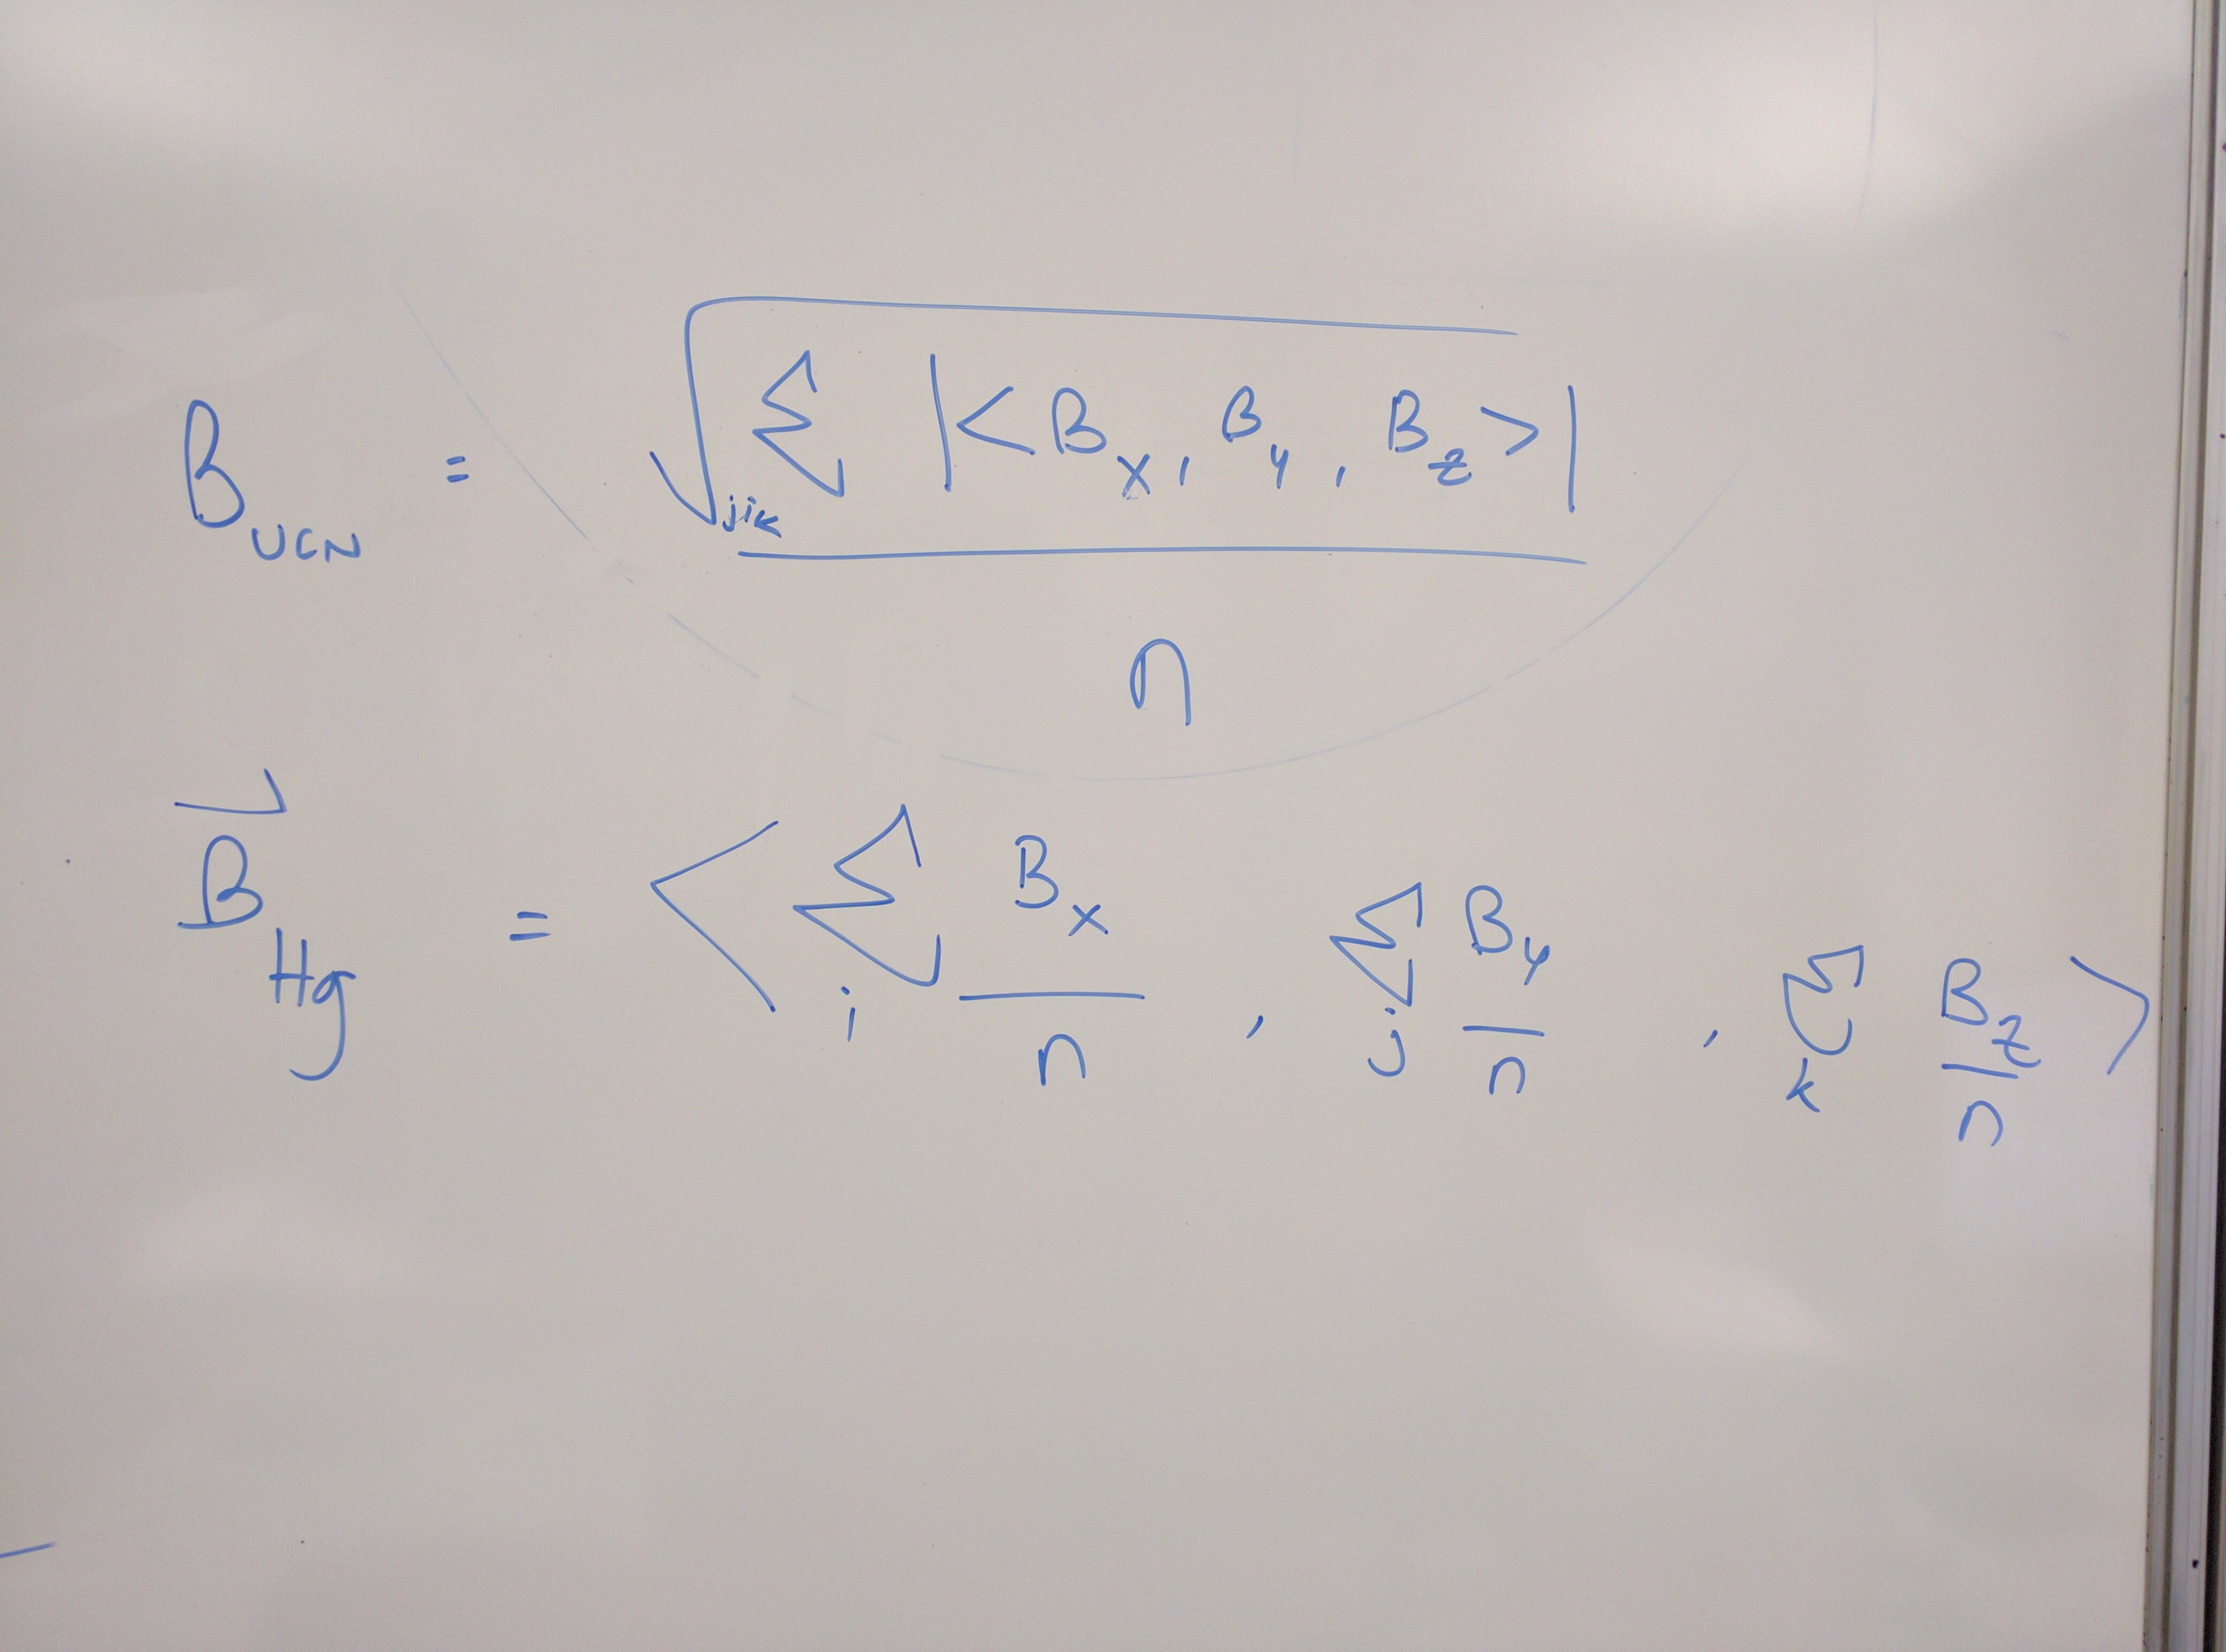 B_UCN = √(Σ_jik |<B_x, B_y, B_z>|) / n
B⃗_Hg = <Σ_i B_x/n, Σ_j B_y/n, Σ_k B_z/n>